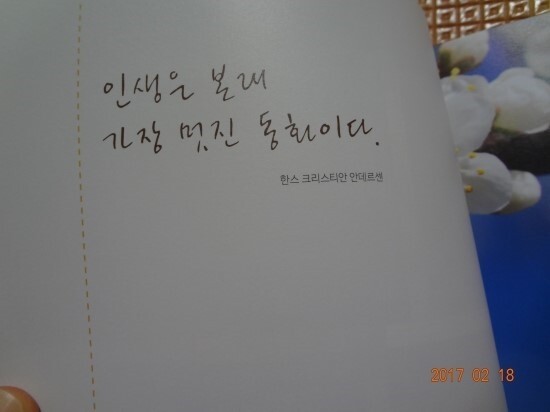 인생은 본래
가장 멋진 동화이다.
한스 크리스티안 안데르센
2017 02 18